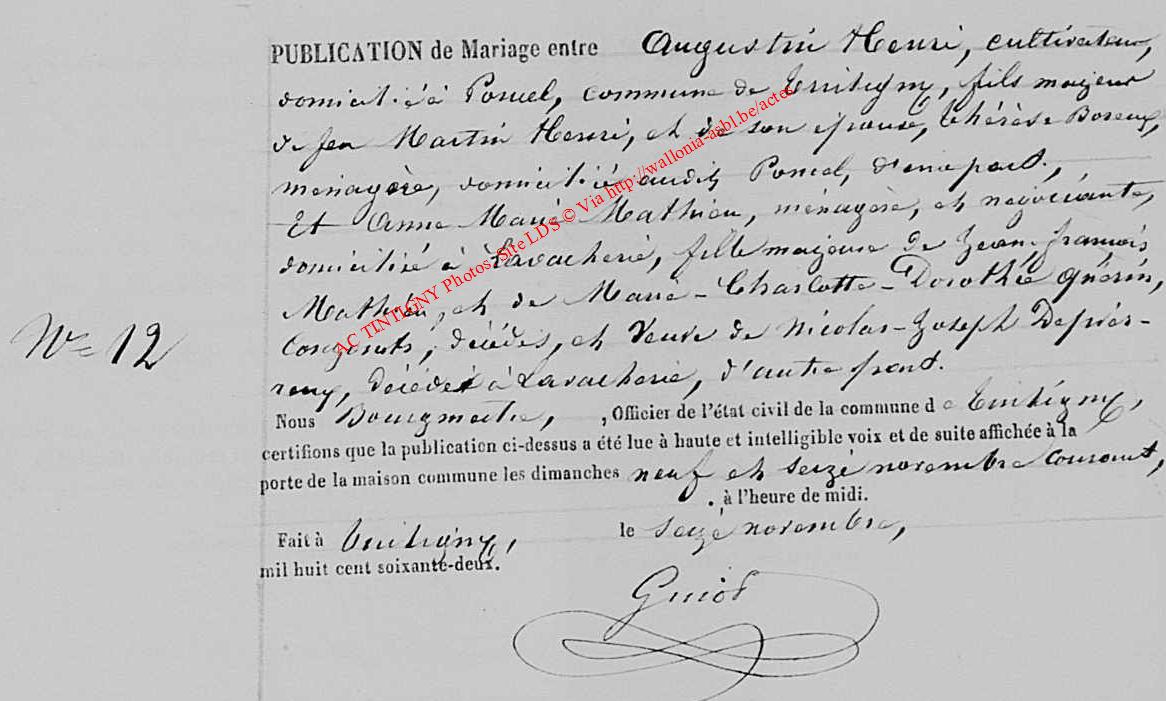 PUBLICATION de Mariage entre Augustin Henri, cultivateur,
domicilié à Poncel, commune de Tintigny, fils majeur
de Jean Martin Henri, et de son épouse, Thérèse
ménagère, domiciliés audit Poncel, d'une part,
Et Anne Marie Mathieu, ménagère, et négociante,
domiciliée à Lavacherie, fille majeure de Jean-françois
Mathieu, et de Marie-Charlotte-Dorothée Guérin,
Conjoints, décédés, et Veuve de Nicolas-Joseph
décédé à Lavacherie, d'autre part.
N° 12
Nous Bourgmestre, , Officier de l'état civil de la commune de Tintigny,
certifions que la publication ci-dessus a été lue à haute et intelligible voix et de suite affichée à la
porte de la maison commune les dimanches neuf et seize novembre courant,
. à l'heure de midi.
Fait à Tintigny, le seize novembre,
mil huit cent soixante-deux.
Guiot
AC TINTIGNY Photos-Site LDS © Via http://wallonia-asbl.be/actes